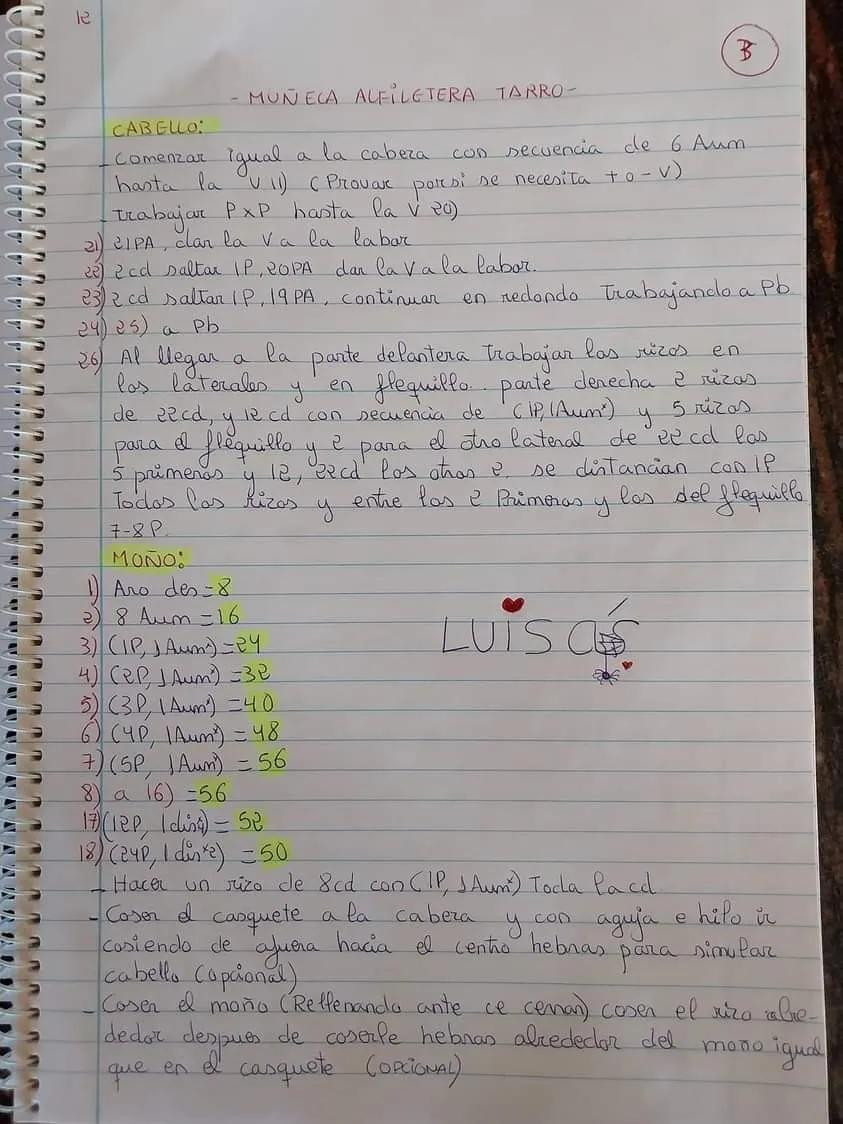 12
B
- MUÑECA ALFILETERA TARRO -
CABELLO:
- Comenzar igual a la cabeza con secuencia de 6 Aum
hasta la V 11) (Provar por si se necesita + o - V)
- Trabajar PxP hasta la V 20)
21) 21PA, dar la V a la labor
22) 2cd saltar 1P, 20PA dar la V a la labor.
23) 2cd saltar 1P, 19PA, continuar en redondo Trabajando a Pb
24) 25) a Pb
26) Al llegar a la parte delantera Trabajar los rizos en
los laterales y en flequillo.. parte derecha 2 rizos
de 22cd, y 12cd con secuencia de (1P, 1Aum) y 5 rizos
para el flequillo y 2 para el otro lateral de 22cd los
5 primeros y 12, 22cd los otros 2, se distancian con 1P
Todos los rizos y entre los 2 Primeros y los del flequillo
7-8P.
MOÑO:
1) Aro des = 8
2) 8 Aum = 16
3) (1P, 1Aum) = 24
4) (2P, 1Aum) = 32
5) (3P, 1Aum) = 40
6) (4P, 1Aum) = 48
7) (5P, 1Aum) = 56
8) a 16) = 56
17) (12P, 1dis4) = 52
18) (24P, 1disx2) = 50
LUISCÁS
- Hacer un rizo de 8cd con (1P, 1Aumx) Toda la cd
- Coser el casquete a la cabeza y con aguja e hilo ir
cosiendo de afuera hacia el centro hebras para simular
cabello (opcional)
- Coser el moño (Rellenando ante ce cerrar) coser el rizo alre-
dedor despues de coserle hebras alrededor del moño igual
que en el casquete (OPCIONAL)